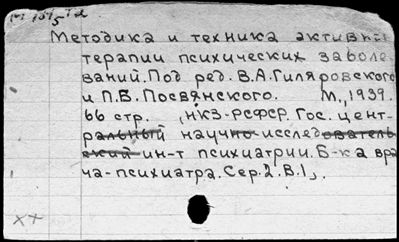 Методика и техника активной
терапии психических заболе-
ваний. Под ред. В.А. Гиляровского
и П.Б. Посвянского. М., 1939.
66 стр. (НКЗ-РСФСР. Гос. цент-
ральный научно-исследователь
ский ин-т психиатрии. Б-ка вра
ча-психиатра. Сер. 2. В. 1).
XX